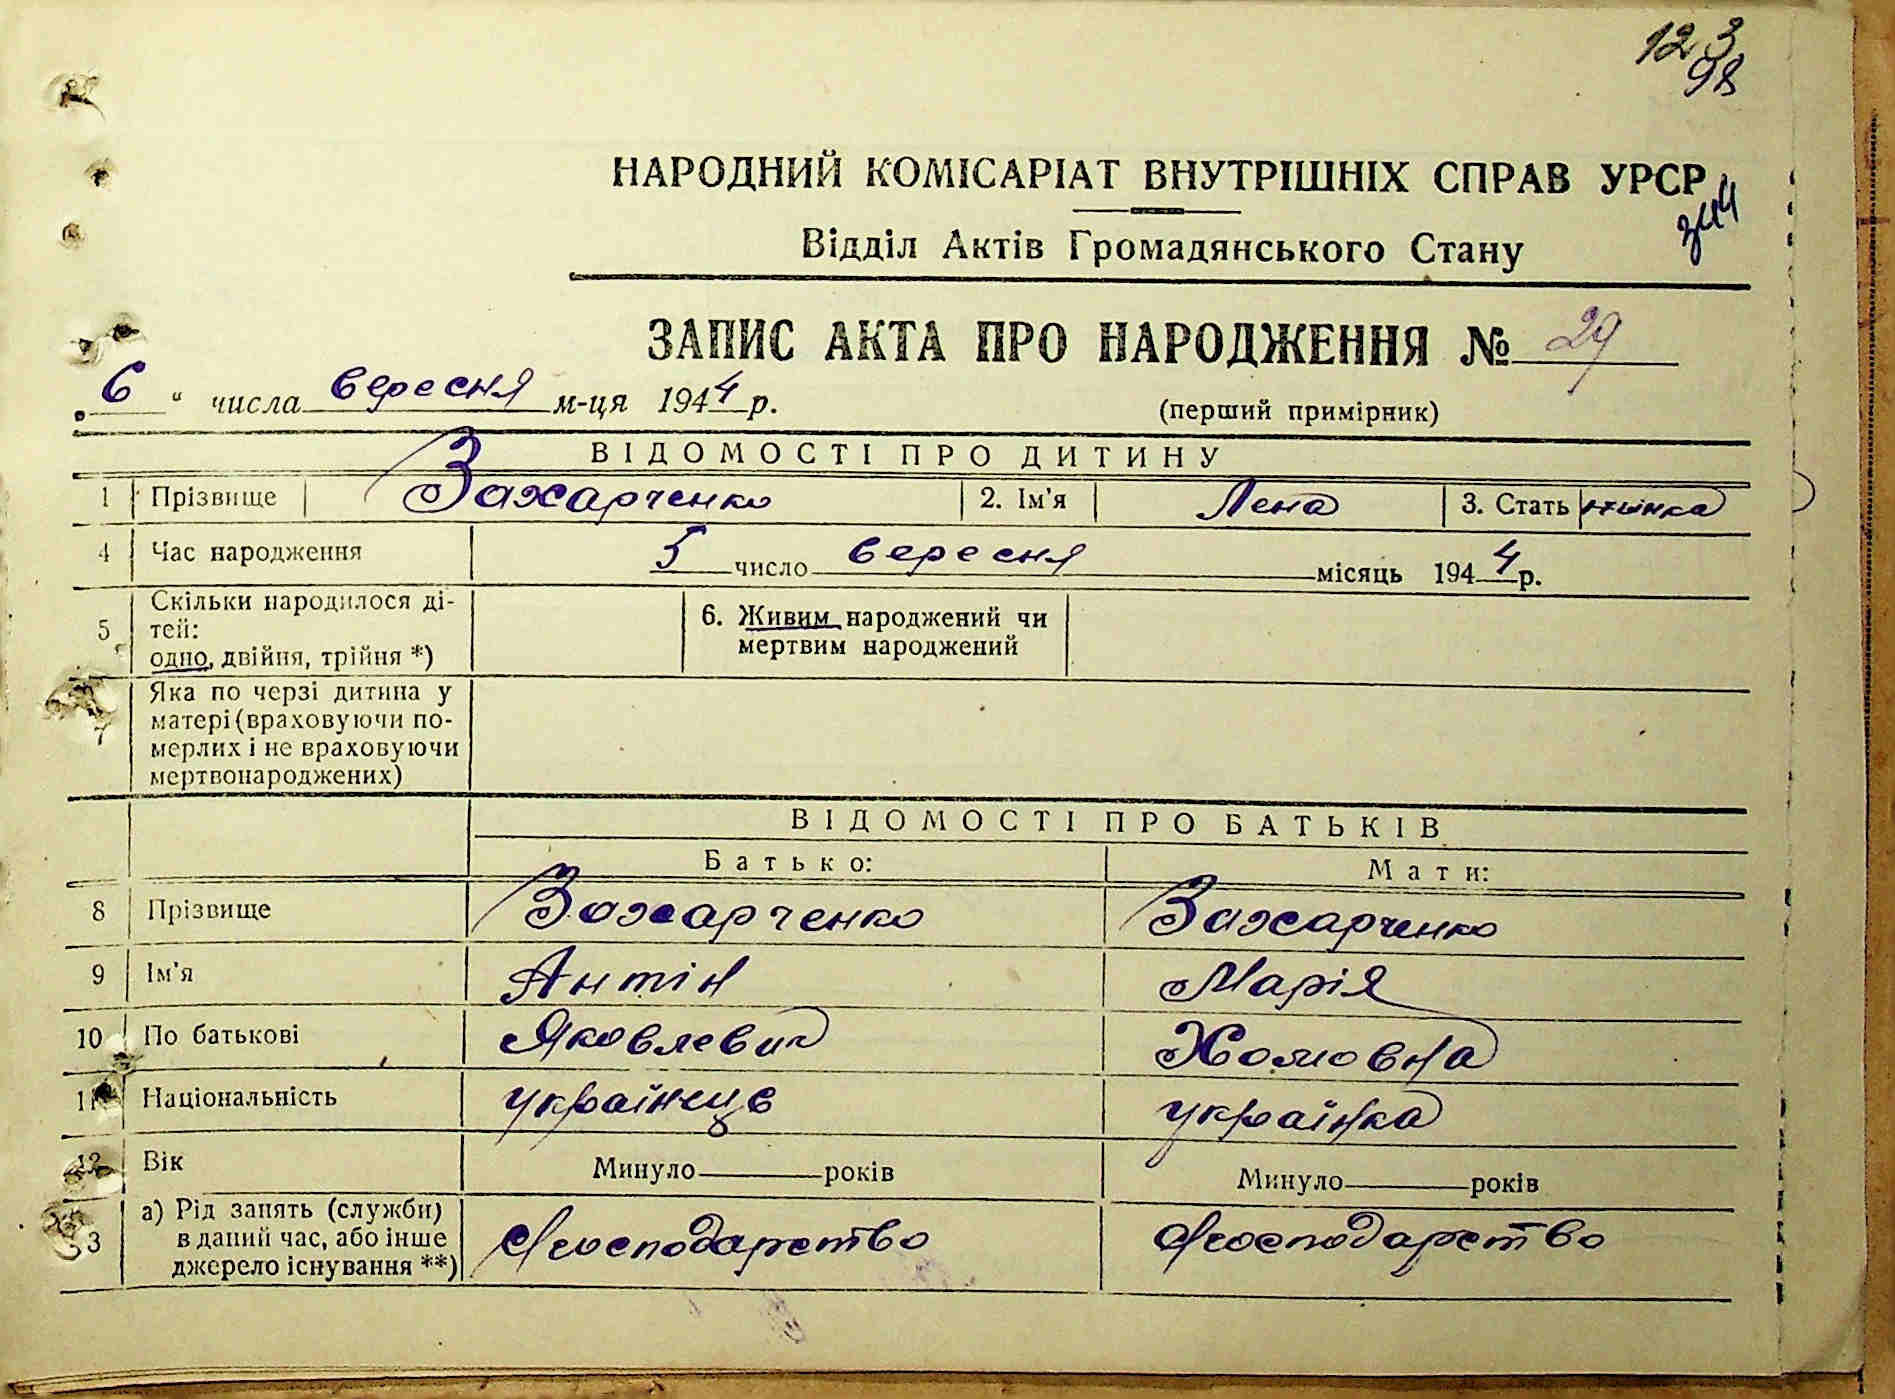 123
98
НАРОДНИЙ КОМІСАРІАТ ВНУТРІШНІХ СПРАВ УРСР
Відділ Актів Громадянського Стану
ЗАПИС АКТА ПРО НАРОДЖЕННЯ № 29
„6“ числа вересня м-ця 1944 р. (перший примірник)
ВІДОМОСТІ ПРО ДИТИНУ
1 Прізвище Захарченко 2. Ім'я Лена 3. Стать жінка
4 Час народження 5 число вересня місяць 1944 р.
Скільки народилося ді-
5 тей: 6. Живим народжений чи
одно, двійня, трійня *) мертвим народжений
Яка по черзі дитина у
матері (враховуючи по-
7 мерлих і не враховуючи
мертвонароджених)
ВІДОМОСТІ ПРО БАТЬКІВ
Батько: Мати:
8 Прізвище Захарченко Захарченко
9 Ім'я Антін Марія
10 По батькові Яковлевич Хомовна
11 Національність українць українка
12 Вік Минуло років Минуло років
а) Рід занять (служби)
3 в даний час, або інше господарство господарство
джерело існування **)